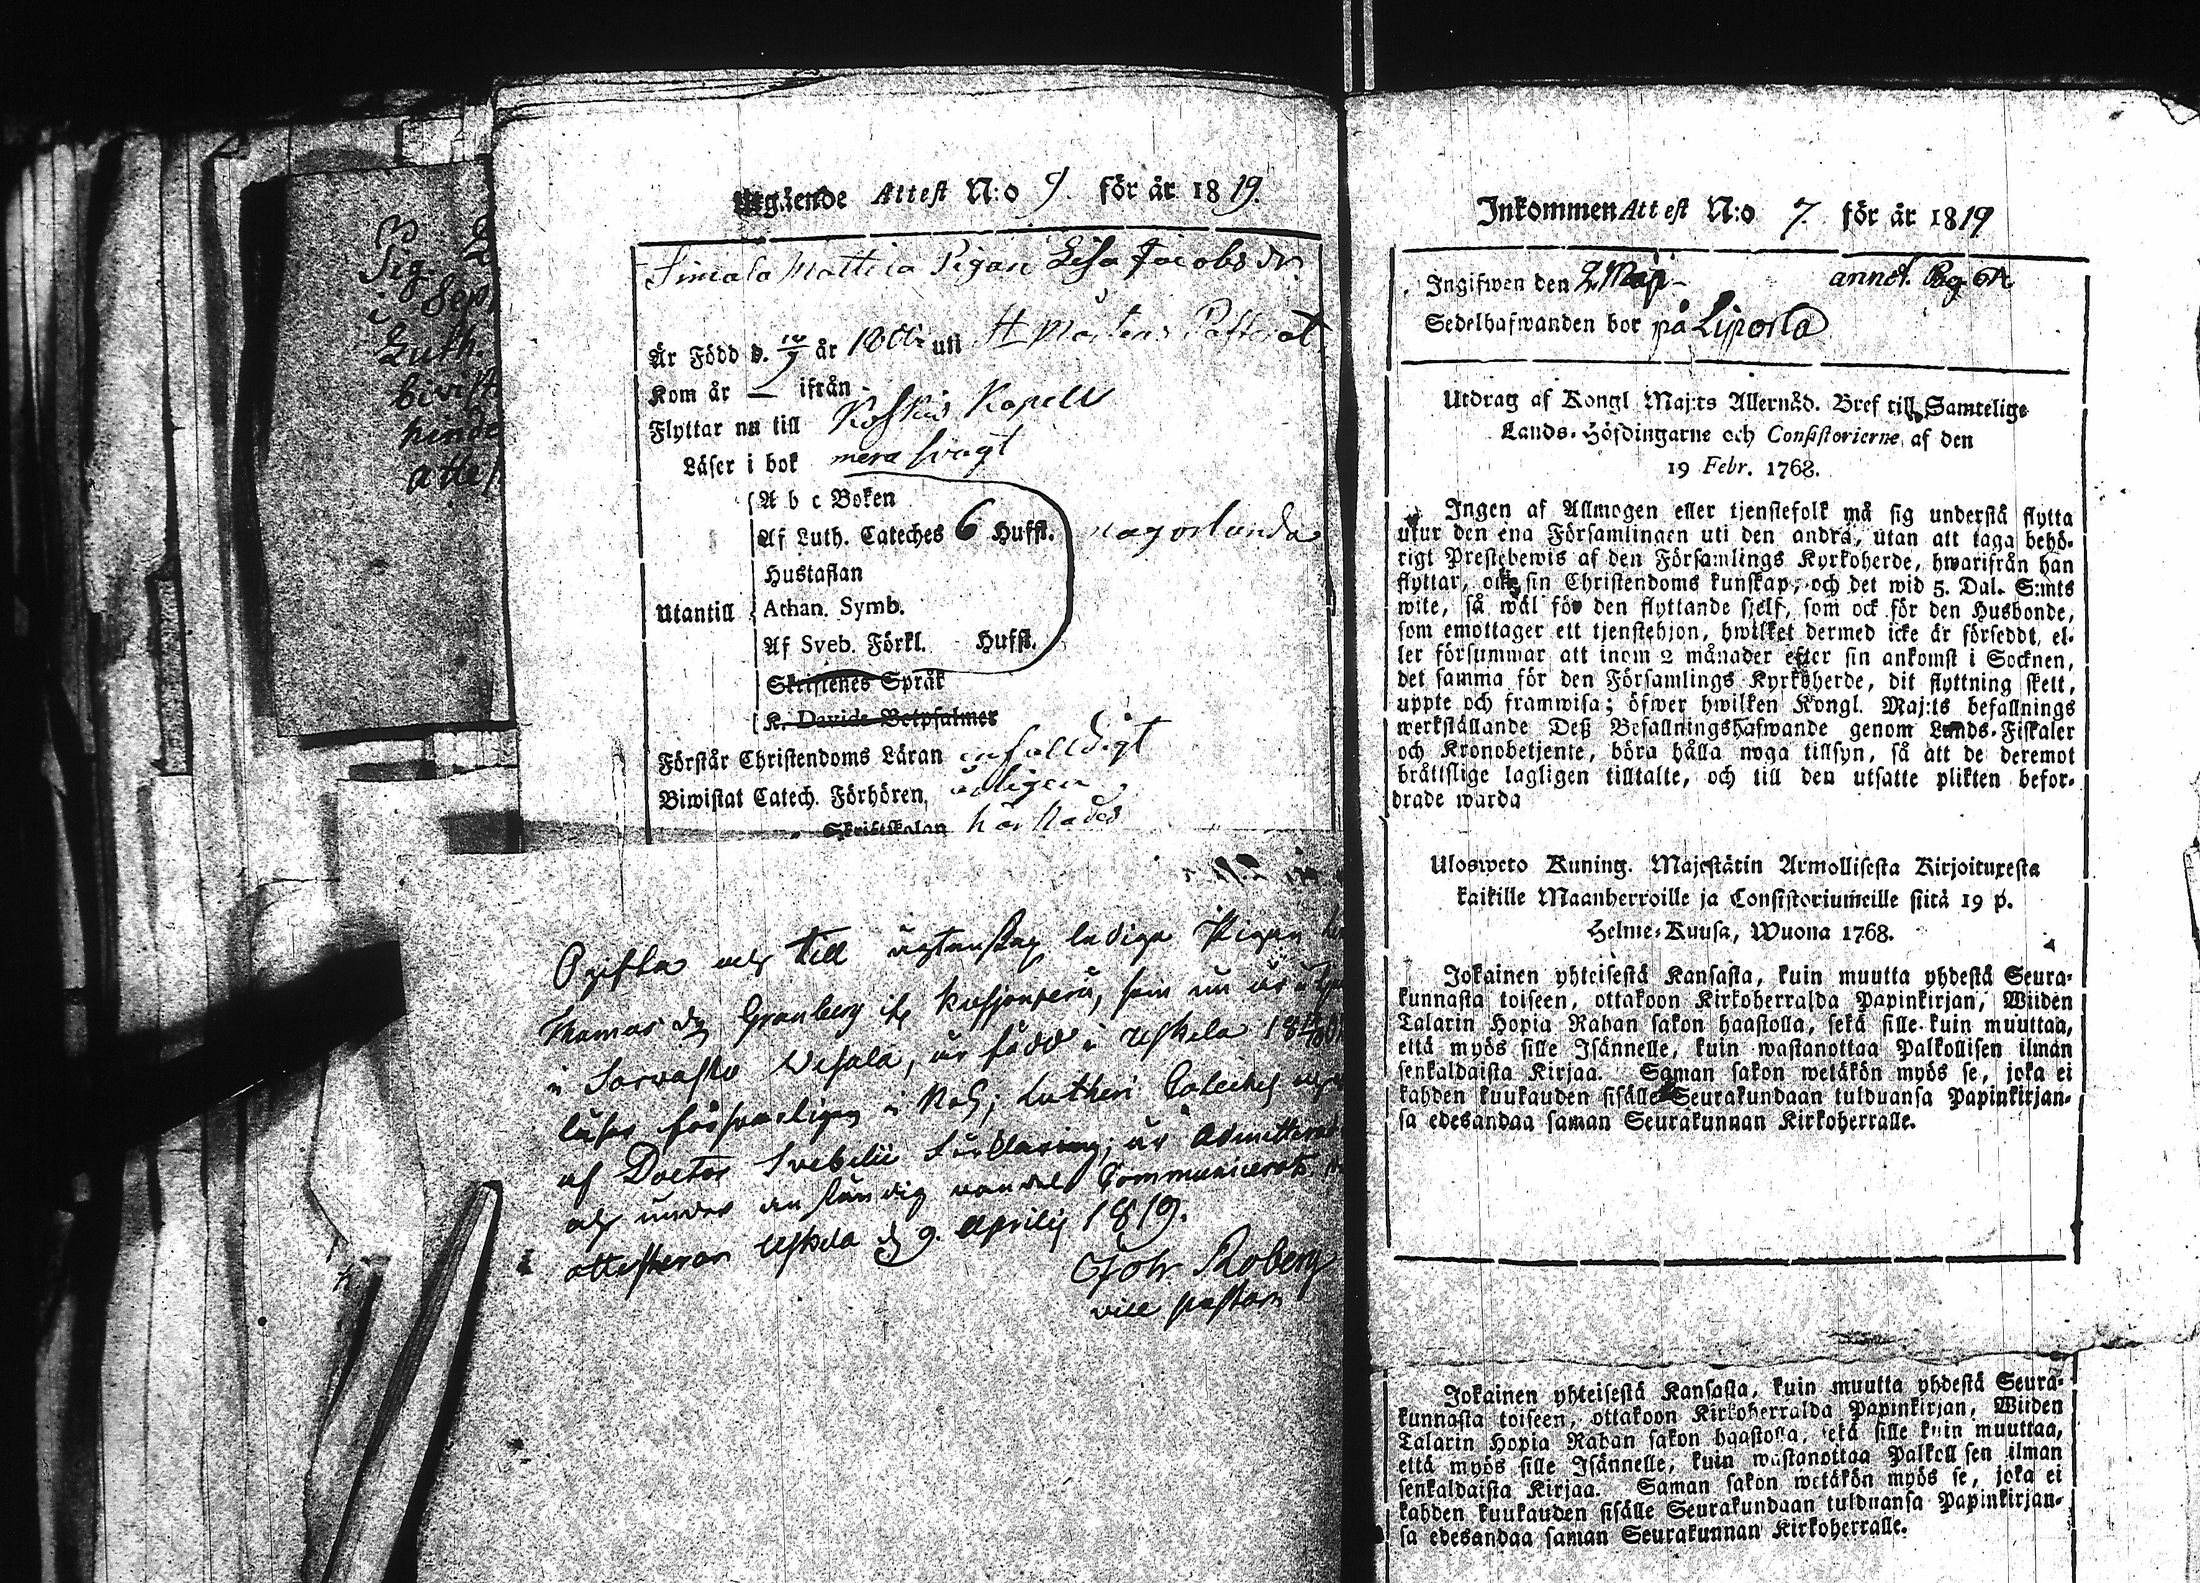 Utgående Attest N:o 9. för år 1819.
Simala Mattila Pigan Lisa Jacobs dr.
Är Född d. år uti St Mårtens Pastorat
Kom år — ifrån
Flyttar nu till Koskis Kapell
Läser i bok mera svagt
A b c Boken
Af Luth. Cateches 6 Huffst. någorlunda
Hustaflan
Utantill Athan. Symb.
Af Sveb. Förkl. Huffst.
Skriftenes Språk
K. Davids Botpsalmer
Förstår Christendoms Läran enfalldigt
Biwistat Catech. Förhören, årligen
Skriftskolan härstädes
Ogifta och till ägtenskap lediga Pigan
Thomas dr Granberg
i Sorvasto Vesala, är född i Uskela
läser försvarligen i Bok; Lutheri Cateches
af Doctor Svebelii Förklaring; är Admitterad
och under anständig vandel Communicerat
attesterar Uskela d 9. Aprilis 1819.
Joh Roberg
vice pastor
Inkommen Attest N:o 7. för år 1819
Ingifwen den 2 Maji annot. Pag
Sedelhafwanden bor på Liporla
Utdrag af Kongl Maj:ts Allernåd. Bref till Samtelige
Lands-Höfdingarne och Consistorierne af den
19 Febr. 1768.
Ingen af Allmogen eller tjenstefolk må sig understå flytta
utur den ena Församlingen uti den andra, utan att taga behö-
rigt Prestebewis af den Församlings Kyrkoherde, hwarifrån han
flyttar, om sin Christendoms kunskap, och det wid 5. Dal. S:mts
wite, så wäl för den flyttande sjelf, som ock för den Husbonde,
som emottager ett tjenstehjon, hwilket dermed icke är försedt, el-
ler försummar att inom 2 månader efter sin ankomst i Socknen,
det samma för den Församlings Kyrkoherde, dit flyttning skett,
uppte och framwisa; öfwer hwilken Kongl. Maj:ts befallnings
werkställande Deß Befallningshafwande genom Lands-Fiskaler
och Kronobetjente, böra hålla noga tillsyn, så att de deremot
bråttslige lagligen tilltalte, och till den utsatte plikten befor-
drade warda
Ulosweto Kuning. Majestätin Armollisesta Kirjoituxesta
kaikille Maanherroille ja Consistoriumeille siitä 19 p.
Helme-Kuusa, Wuona 1768.
Jokainen yhteisestä Kansasta, kuin muutta yhdestä Seura-
kunnasta toiseen, ottakoon Kirkoherralda Papinkirjan, Wiiden
Talarin Hopia Rahan sakon haastolla, sekä sille kuin muuttaa,
että myös sille Isännelle, kuin wastanottaa Palkollisen ilman
senkaldaista Kirjaa. Saman sakon wetäkön myös se, joka ei
kahden kuukauden sisälle Seurakundaan tulduansa Papinkirjan-
sa edesandaa saman Seurakunnan Kirkoherralle.
Jokainen yhteisestä Kansasta, kuin muutta yhdestä Seura-
kunnasta toiseen, ottakoon Kirkoherralda Papinkirjan, Wiiden
Talarin Hopia Rahan sakon haastolla, sekä sille kuin muuttaa,
että myös sille Isännelle, kuin wastanottaa Palkollisen ilman
senkaldaista Kirjaa. Saman sakon wetäkön myös se, joka ei
kahden kuukauden sisälle Seurakundaan tulduansa Papinkirjan-
sa edesandaa saman Seurakunnan Kirkoherralle.